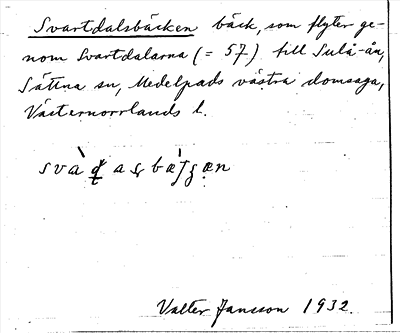 Svartdalsbäcken bäck, som flyter ge-
nom Svartdalarna (= 57) till Sulå-ån,
Sättna sn, Medelpads västra domsaga,
Västernorrlands l.
Valter Jansson 1932.